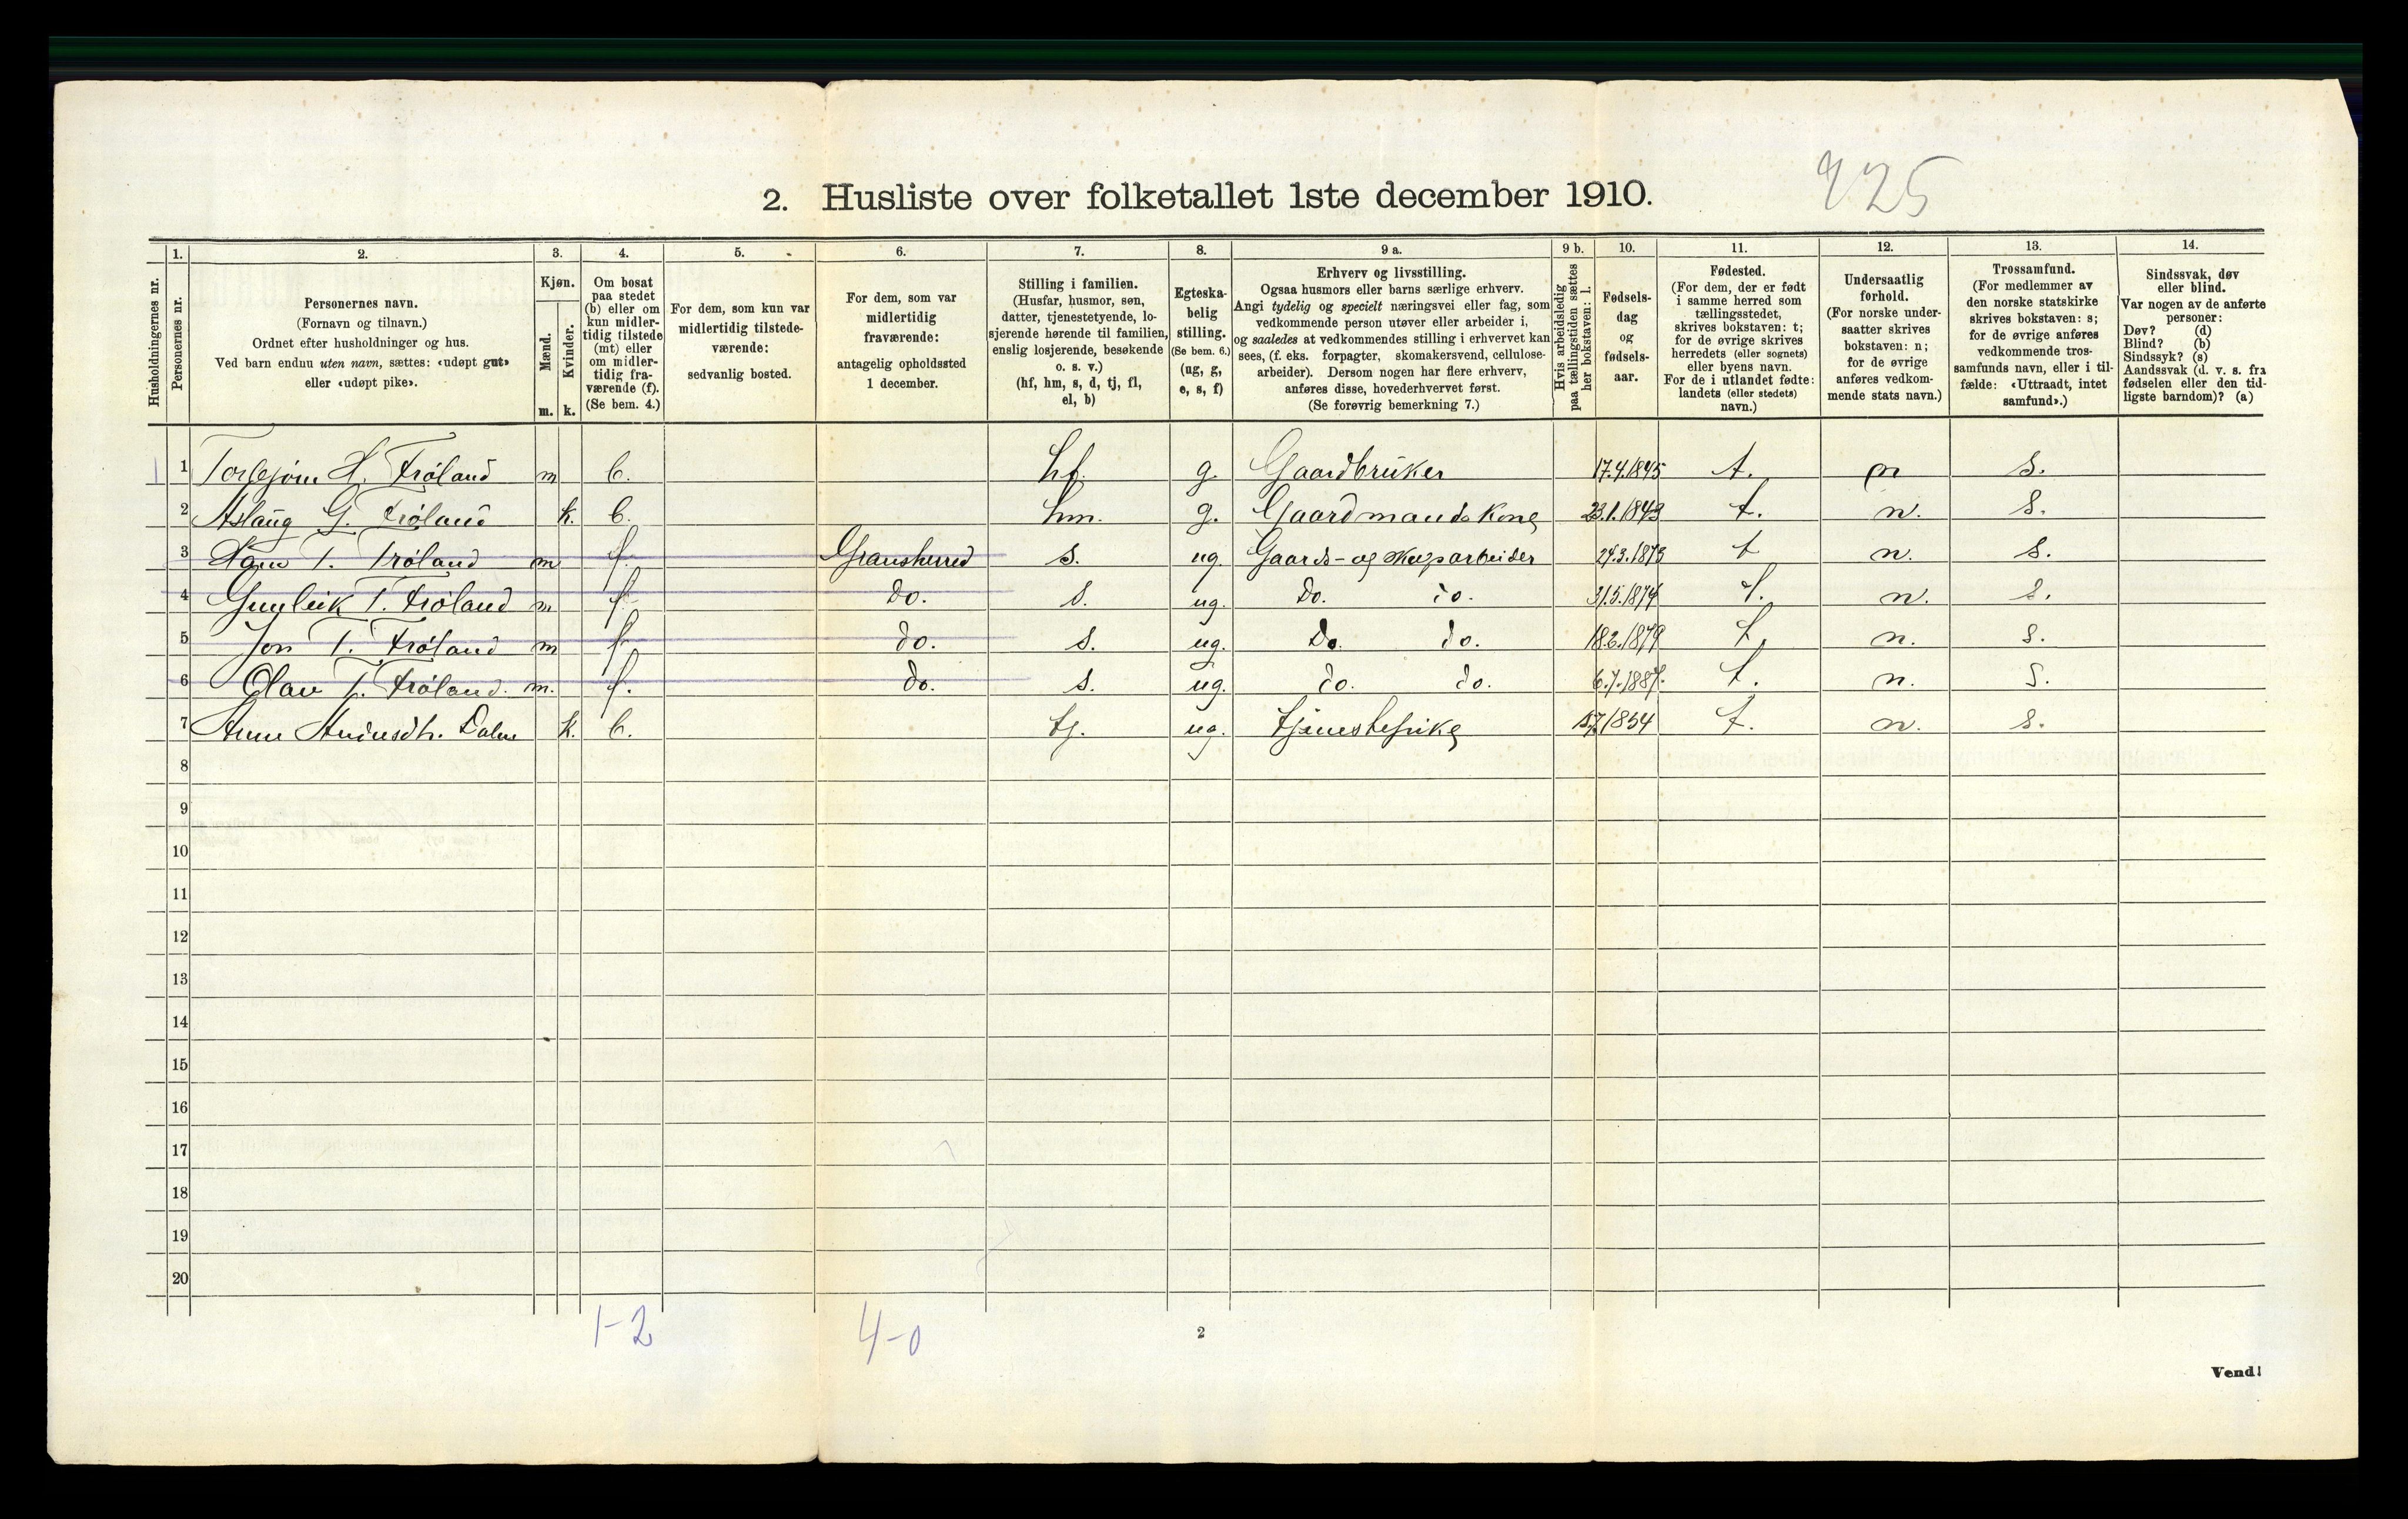 2. Husliste over folketallet 1ste december 1910.
225
Husholdningernes nr.
1.
Personernes nr.
2.
Personernes navn.
(Fornavn og tilnavn.)
Ordnet efter husholdninger og hus.
Ved barn endnu uten navn, sættes: «udøpt gut»
eller «udøpt pike».
3.
Kjøn.
Mænd.
m.
Kvinder.
k.
4.
Om bosat
paa stedet
(b) eller om
kun midler-
tidig tilstede
(mt) eller
om midler-
tidig fra-
værende (f).
(Se bem. 4.)
5.
For dem, som kun var
midlertidig tilstede-
værende:
sedvanlig bosted.
6.
For dem, som var
midlertidig
fraværende:
antagelig opholdssted
1 december.
7.
Stilling i familien.
(Husfar, husmor, søn,
datter, tjenestetyende, lo-
sjerende hørende til familien,
enslig losjerende, besøkende
o. s. v.)
(hf, hm, s, d, tj, fl,
el, b)
8.
Egteska-
belig
stilling.
(Se bem. 6.)
(ug, g,
e, s, f)
9 a.
Erhverv og livsstilling.
Ogsaa husmors eller barns særlige erhverv.
Angi tydelig og specielt næringsvei eller fag, som
vedkommende person utøver eller arbeider i,
og saaledes at vedkommendes stilling i erhvervet kan
sees, (f. eks. forpagter, skomakersvend, cellulose-
arbeider). Dersom nogen har flere erhverv,
anføres disse, hovederhvervet først.
(Se forøvrig bemerkning 7.)
9 b.
Hvis arbeidsledig
paa tællingstiden sættes
her bokstaven: l.
10.
Fødsels-
dag
og
fødsels-
aar.
11.
Fødested.
(For dem, der er født
i samme herred som
tællingsstedet,
skrives bokstaven: t;
for de øvrige skrives
herredets (eller sognets)
eller byens navn.
For de i utlandet fødte:
landets (eller stedets)
navn.)
12.
Undersaatlig
forhold.
(For norske under-
saatter skrives
bokstaven: n;
for de øvrige
anføres vedkom-
mende stats navn.)
13.
Trossamfund.
(For medlemmer av
den norske statskirke
skrives bokstaven: s;
for de øvrige anføres
vedkommende tros-
samfunds navn, eller i til-
fælde: «Uttraadt, intet
samfund».)
14.
Sindssvak, døv
eller blind.
Var nogen av de anførte
personer:
Døv? (d)
Blind? (b)
Sindssyk? (s)
Aandssvak (d. v. s. fra
fødselen eller den tid-
ligste barndom)? (a)
1 1 Torbjørn H. Frøland m b. hf. g. Gaardbruker 17.4.1845 t. n s.
2 Aslaug G. Frøland k. b. hm. g. Gaardmandskone 23.1.1843 t. n. s.
3 T. Frøland m f. Gransherred s. ug. Gaards- og arbeider 24.3.1873 t n. s.
4 Gunleik T. Frøland m f. Do. s. ug. Do. do. 31.5.1874 t. n. s.
5 Jon T. Frøland m f. do. s. ug. Do. do. 1879 t. n. s.
6 Olav T. Frøland. m. f. do. s. ug. do. do. 6.7.1887. t. n. s.
7 Anne k. b. tj. ug. tjenestepike 1854 t. n. s.
8
9
10
11
12
13
14
15
16
17
18
19
20
1-2
4-0
2
Vend!